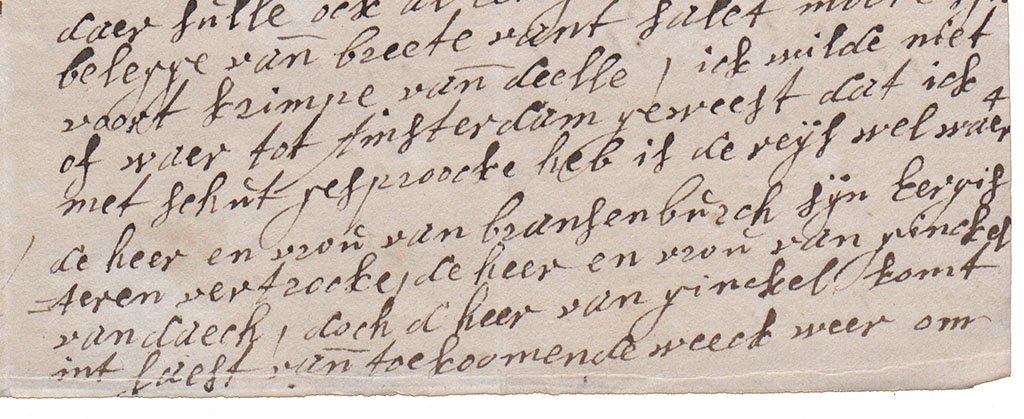 daer sulle ock
belegge van̄ breete vant salet
voort krimpe van̄ deelle, ick wilde niet
of waer tot Amsterdam geweest dat ick
met schut gesproocke heb is de reijs wel waert
de heer en vroŭ van bransenbŭrch sijn Eergis
teren vertrocke, de heer en vroŭ van ginckel
vandaech, doch d heer van ginckel komt
int laest van̄ toekoomende weeck weer om